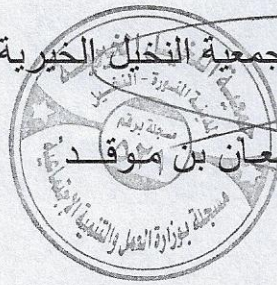 جمعية النخيل الخيرية
عان بن موقد
المدينة المنورة - النخيل
مسجلة برقم
مسجلة بوزارة العمل والتنمية الإجتماعية